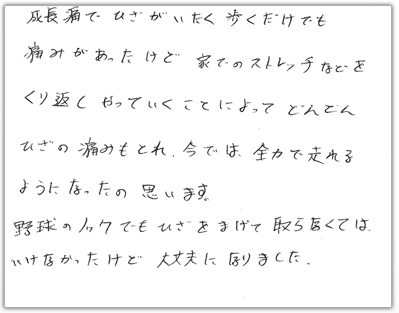 成長痛で ひざがいたく 歩くだけでも
痛みがあったけど 家でのストレッチなどを
くり返し やっていくことによって どんどん
ひざの痛みもとれ、今では、全力で走れる
ようになったの 思います。
野球のノックでもひざをまげて 取らなくては、
いけなかったけど 大丈夫に なりました。